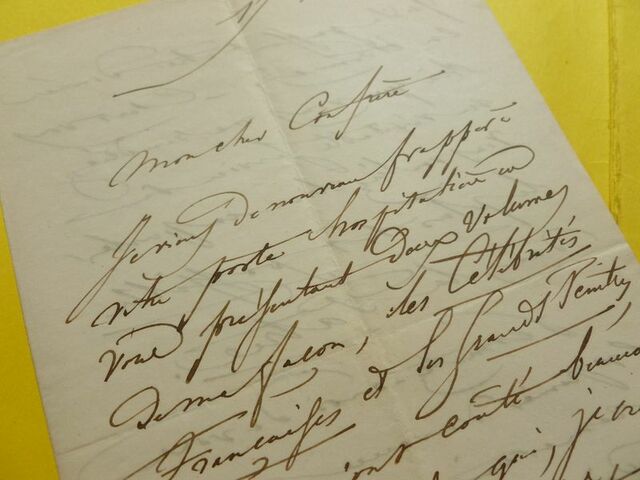 Mon cher Confrère
Je viens de nouveau frapper à
votre porte hospitalière en
vous présentant deux volumes
de ma façon, les Célébrités
Françaises et les Grands Peintres
ont couté beaucou
qui, je cr